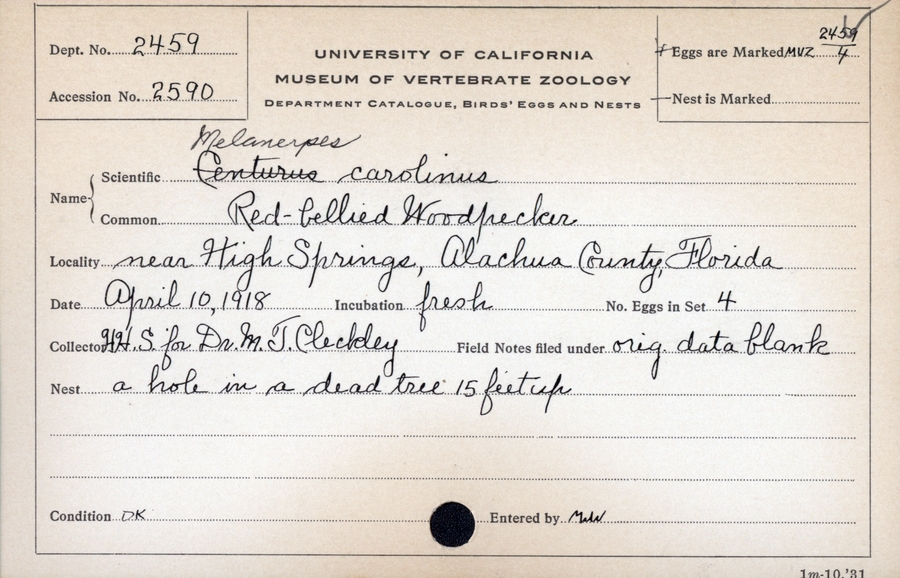 Dept. No. 2459
Accession No. 2590
UNIVERSITY OF CALIFORNIA
MUSEUM OF VERTEBRATE ZOOLOGY
DEPARTMENT CATALOGUE, BIRDS' EGGS AND NESTS
Eggs are Marked MVZ 2459/4
Nest is Marked
Melanerpes
Name Scientific Centurus carolinus
Common Red-bellied Woodpecker
Locality near High Springs, Alachua County, Florida
Date April 10, 1918 Incubation fresh No. Eggs in Set 4
Collector H.H.S. for Dr. M. T. Cleckley Field Notes filed under orig. data blank
Nest a hole in a dead tree 15 feet up
Condition OK Entered by
1m-10,'31